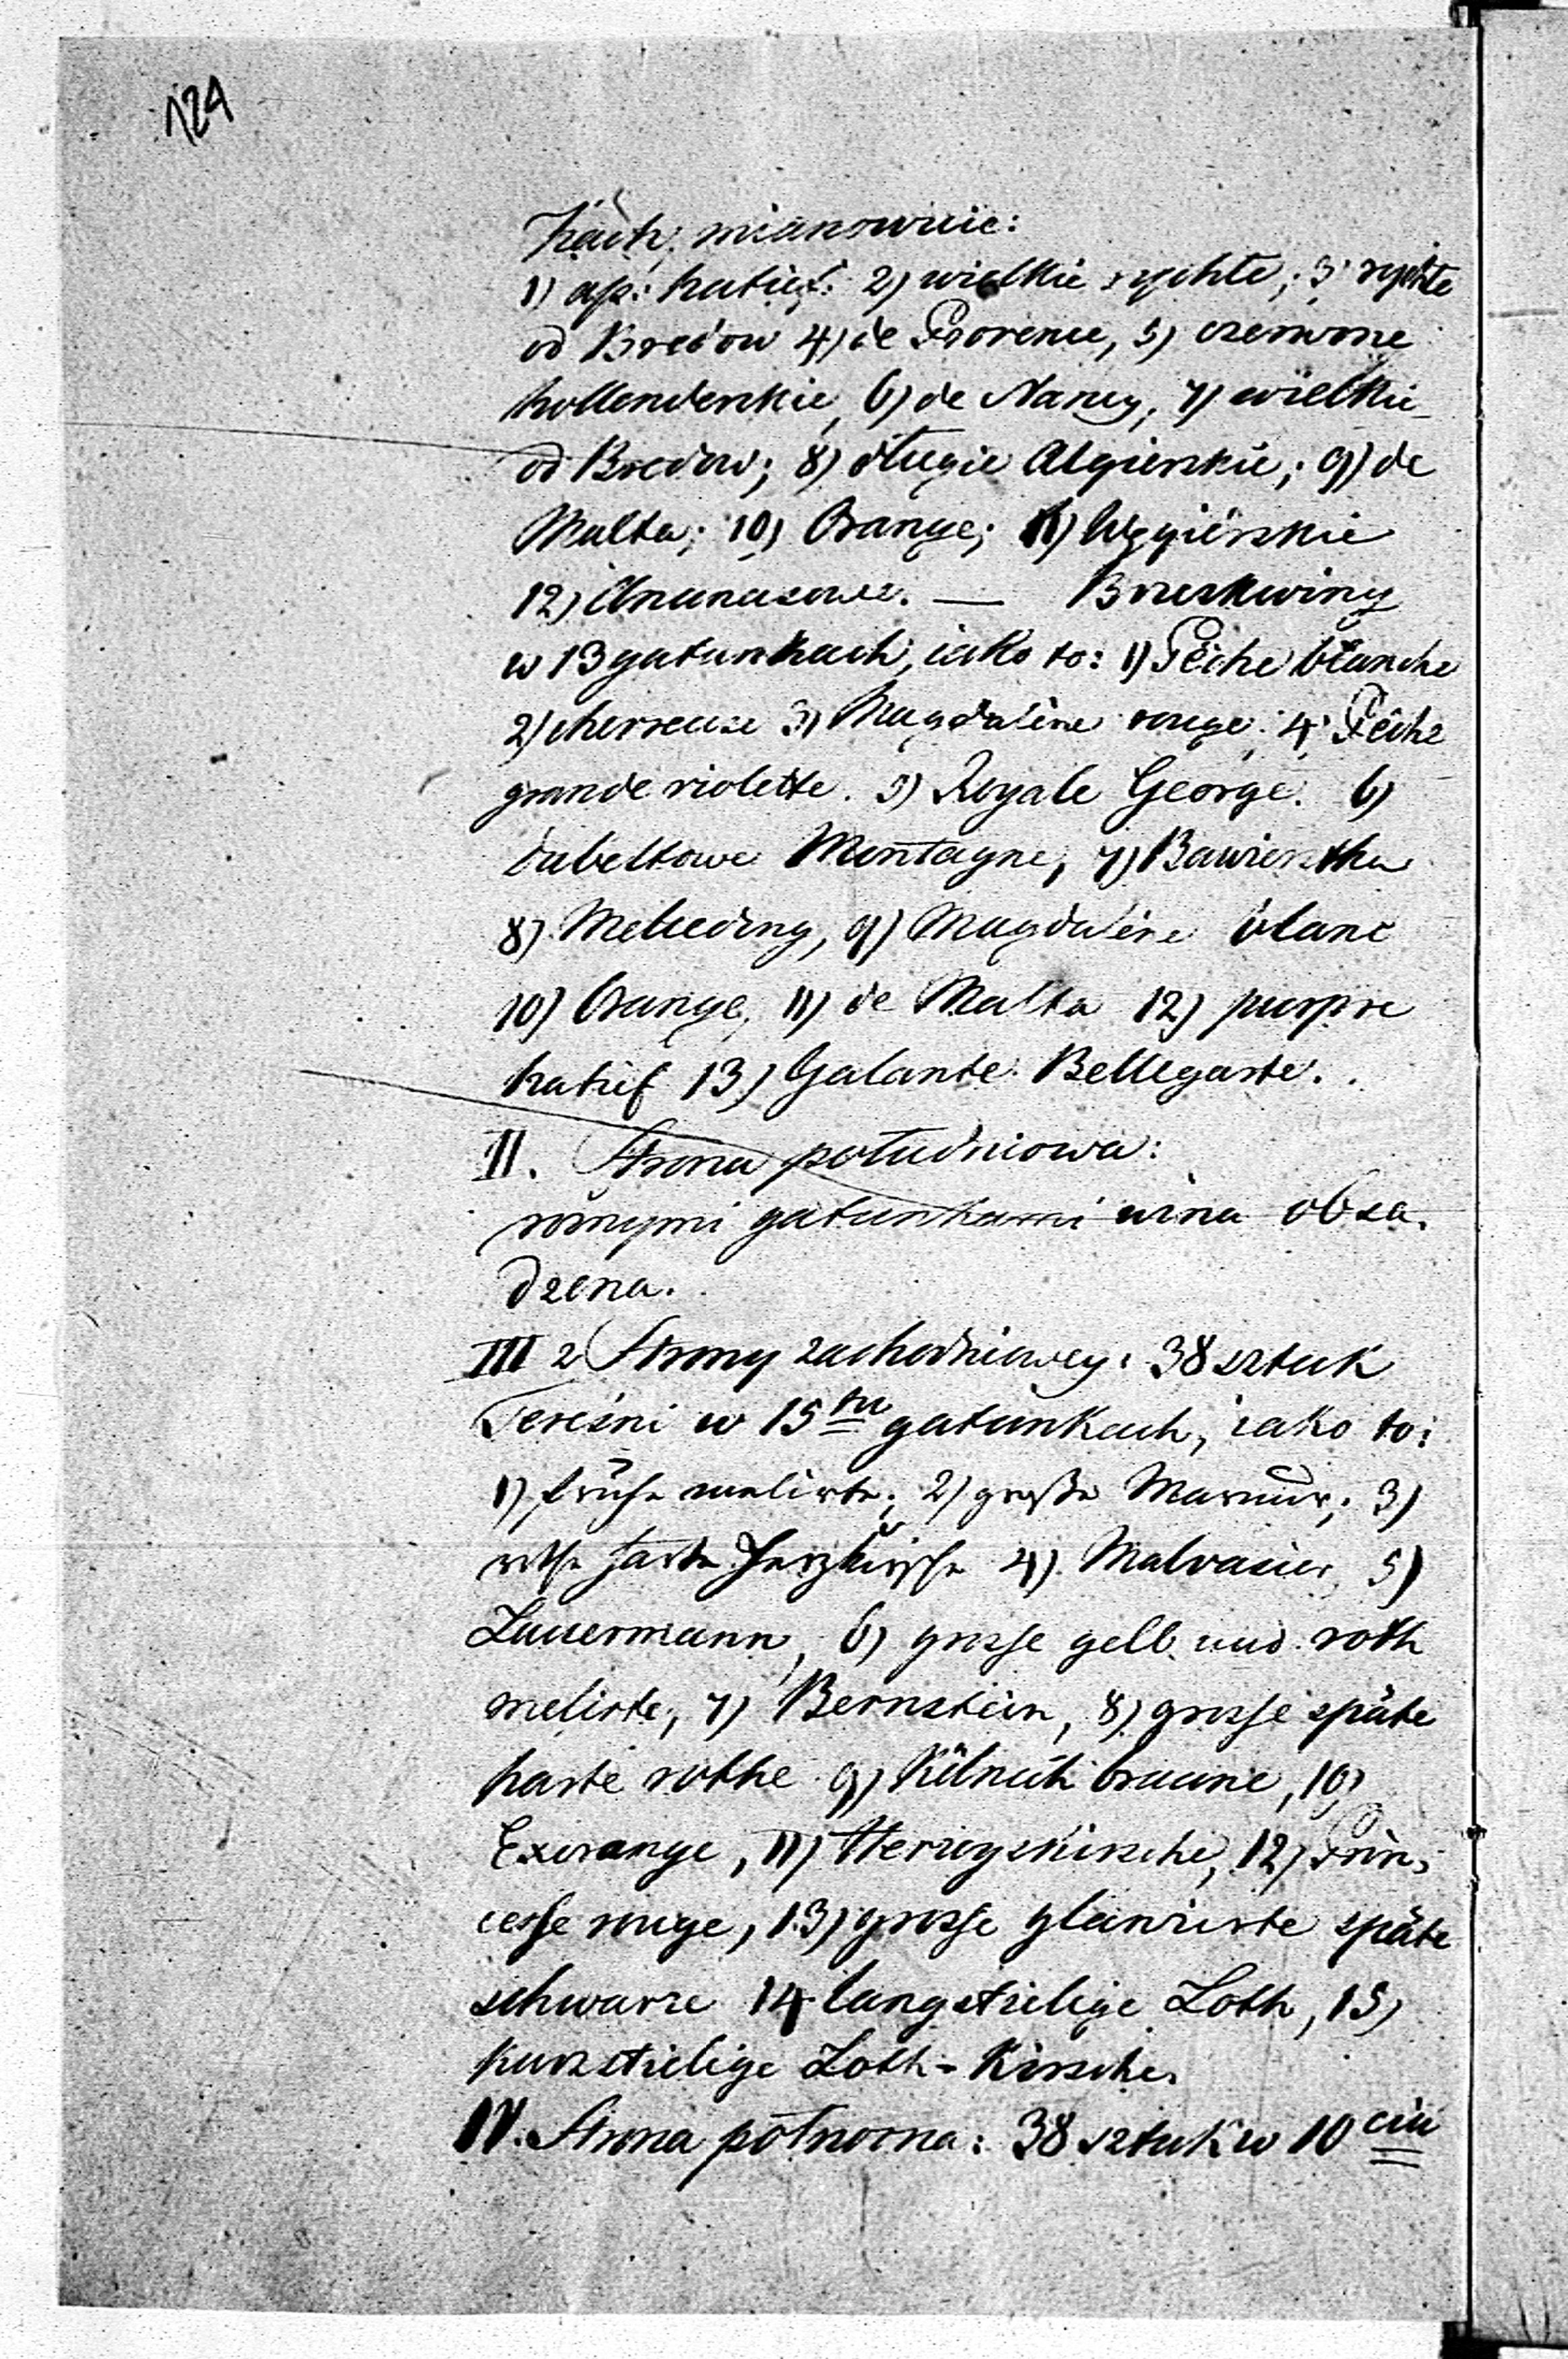 124
kach, mianowicie:
1) ap: hatief: 2) wielkie rychte; 3) rychte
od Bredow 4) de Provence, 5) czerwone
hollenderskie, 6) de Nancy, 7) wielkie
od Bredow; 8) długie Algierskie; 9) de
Malta; 10) Orange; 11) Węgierskie
12) Ananasowe. — Brzeskwiny
w 13 gatunkach, iako to: 1) Pêche blanche
2) cherreuse 3) Magdalène rouge; 4) Pêche
grande violette. 5) Royale George. 6)
dubeltowe Montagne, 7) Bawierska
8) , 9) Magdalène blanc
10) Orange, 11) de Malta 12) purpre
hatief 13) Galante Bellegarde.
II. Strona południowa:
rożnymi gatunkami wina obsa-
dzona.
III z Strony zachodniowey: 38 sztuk
Tereśni w 15tu gatunkach, iako to:
1) frühe melirte; 2) große Marmor; 3)
rothe harte Herzkirsche 4) Malvasier, 5)
Lauermann, 6) grosse gelb und roth
melirte, 7) Bernstein, 8) grosse späte
harte rothe 9) braune, 10)
, 11) Herzogskirsche, 12) Prin-
cesse rouge, 13) grosse späte
schwarze 14 langstielige Loth, 15)
kurzstielige Loth-Kirsche.
IV. Strona północna: 38 sztuk w 10ciu